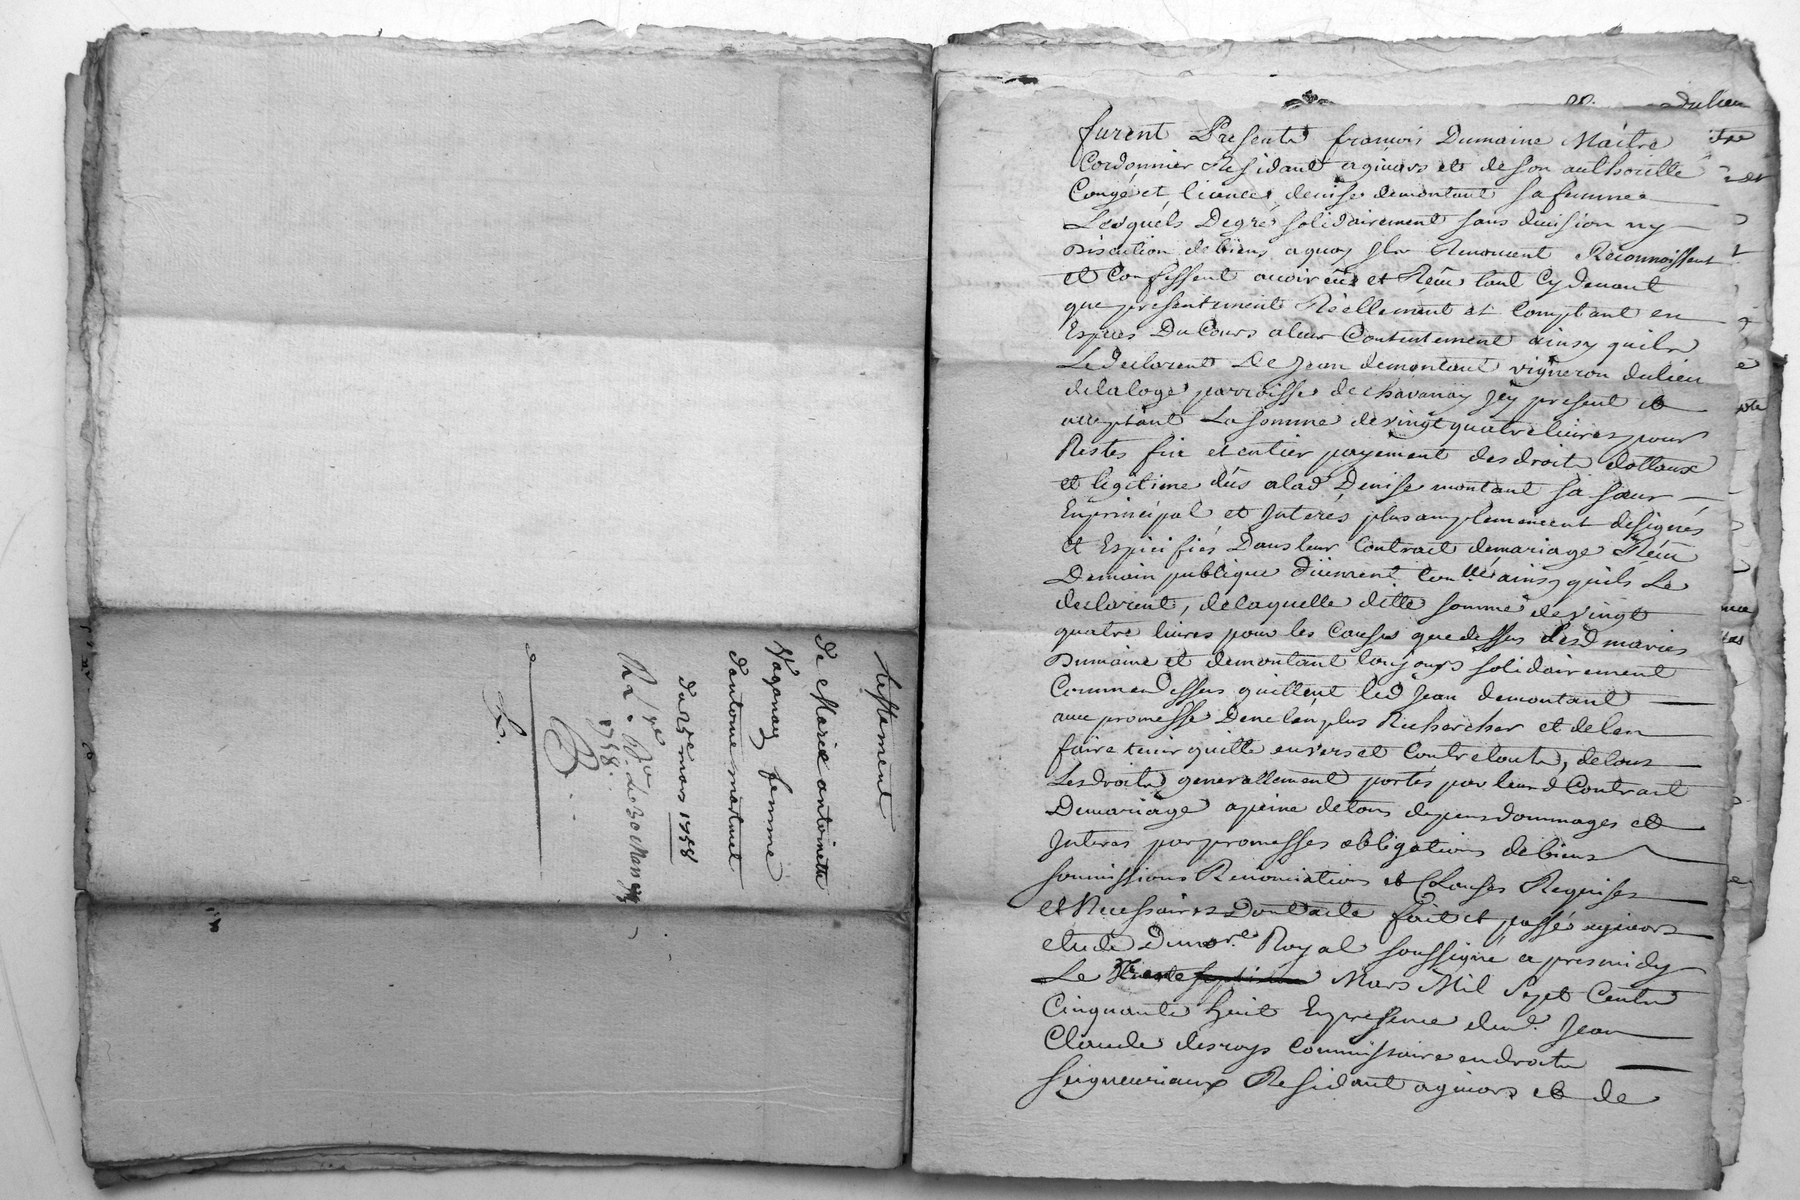 testament
de Marie antoinette
Vaganay femme
dantoine martinet
du 25e mars 1758
1758.
furent Presents francois Dumaine Maitre
Cordonnier Residant agivors et de son authoritté
Congé et licence denise demontant sa femme
Lesquels Degré solidairement sans division ny
Discution de biens aquoy ils Renoncent Reconnoissent
et Confessent avoir eüs et Reçu tant Cy devant
que presentement Réellement et Comptant en
Espèces Du Cours aleur Contentement ainsy quils
Le declarent De Jean demontant vigneron du lieu
de la loge parroisse de chavanay jcy present et
acceptant La somme de vingt quatre livres pour
Restes fin et entier payement des droits dottaux
et legitime dus alad Denise montant sa sœur
En principal et Interés plus amplemencent désignés
et Espicifiés Dans leur Contrait de mariage Réçu
Demain publique düement Conllé ainsy quils Le
declarent, de laquelle ditte somme de vingt
quatre livres pour les Causes que dessus lesd maries
Dumaine et demontant toujours solidairement
Comme Dessus quittent led Jean demontant
avec promesse De ne lan plus Rechercher et de lan
faire tenir quitte envers et Contre touts, de tous
Les droits generallement portés par leurd Contrait
De mariage apeine de tous depens dommages et
Interes par promesses obligations de biens
soumissions Renonciations et Clauses Requises
et Necessaires Dont acte fait et passé agivors
etude Du nore. Royal soussigné apres midy
Le Trente Mars Mil Sept Cents
Cinquante huit En presence dud. Jean
Claude desroys Commissaire en droits
seigneuriaux Residant agivors et de
du lieu